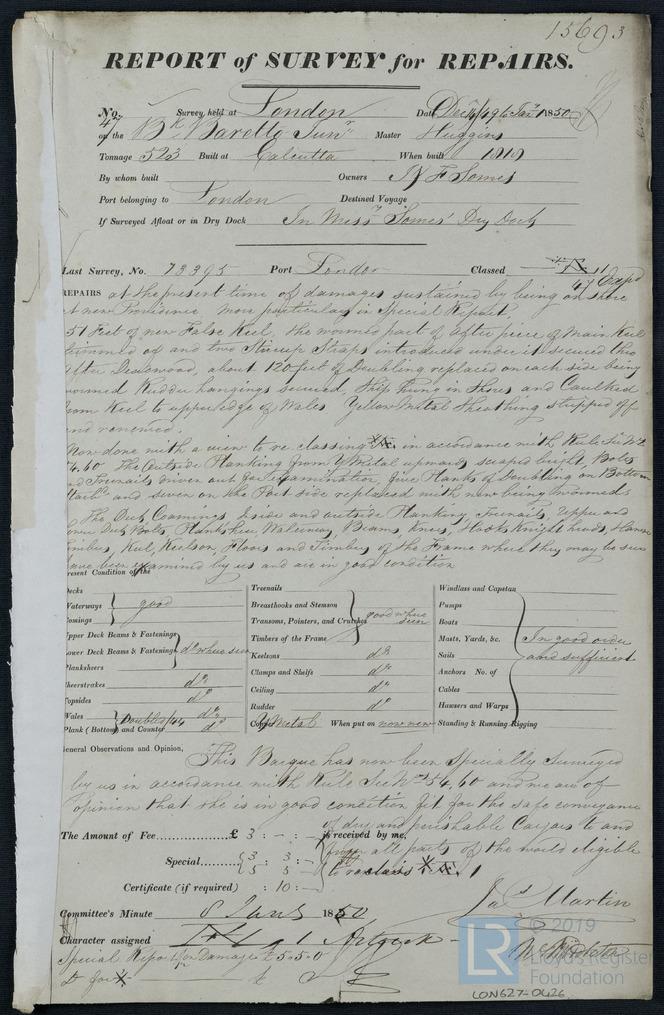 15693
REPORT of SURVEY for REPAIRS.
No. 47 Survey held at London Date Dec 14/49 to Jany 1 1850
on the Bk Baretto Junr Master Huggins
Tonnage 523 Built at Calcutta When built 1818
By whom built Owners F Somes
Port belonging to London Destined Voyage
If Surveyed Afloat or in Dry Dock In Messrs Somes' Dry Dock
Last Survey, No. 13395 Port London Classed
47 Expd
REPAIRS at the present time of damages sustained by being on shore
at new Providence, more particulars in Special Report
51 Feet of new False Keel, the wormed part of after piece of Main Keel
trimmed of and two Stirrup Straps introduced under it secured thro
after Deadwood, about 120 feet of Doubling replaced on each side being
wormed Rudder hangings secured, Ship hung in Shores and Caulked
from Keel to upper edge of Wales Yellow Metal Sheathing stripped off
and renewed.
Now done with a view to re classing in accordance with Rule Sec No 2
54.60 The Outside Planking from Y Metal upwards scraped bright, Bolts
and Treenails driven out for Examination, five Planks of Doubling on Bottom
and seven on the Port side replaced with new being wormed
The Deck, Comings Inside and outside Planking Treenails, Upper and
Lower Deck Bolts Planksheer, Waterway, Beams, Knees, Hooks Knightheads, Hawse
Timbers, Keel, Keelson, Floors and Timbers of the Frame where they may be seen
have been examined by us and are in good condition
Present Condition of the
Decks
Waterways good
Comings
Upper Deck Beams & Fastenings
Lower Deck Beams & Fastenings do where seen
Planksheers
Sheerstrakes do
Topsides do
Wales Doubled /44 do
Plank (Bottom and Counter) do
Treenails
Breasthooks and Stemson
Transoms, Pointers, and Crutches good where seen
Timbers of the Frame
Keelsons do
Clamps and Shelfs do
Ceiling do
Rudder do
Copper Y Metal When put on now new
Windlass and Capstan
Pumps
Boats
Masts, Yards, &c. In good order
Sails and sufficient
Anchors No. of
Cables
Hawsers and Warps
Standing & Running Rigging
General Observations and Opinion, This Barque has now been Specially Surveyed
by us in accordance with Rule Sec Nos 54, 60 and we are of
opinion that she is in good condition fit for the safe conveyance
of dry and perishable Cargoes to and
from all parts of the world eligible
to reclass 1
The Amount of Fee £ 3 : - : - is received by me,
Special 3 : 3 : -
5 5 -
Certificate (if required) : 10 : -
Jas Martin
Committee's Minute 8 Jany 1850
Character assigned
Special Repo for Damage £5.5.0
© 2019
LR
Lloyd's Register
Foundation
LON627-0426